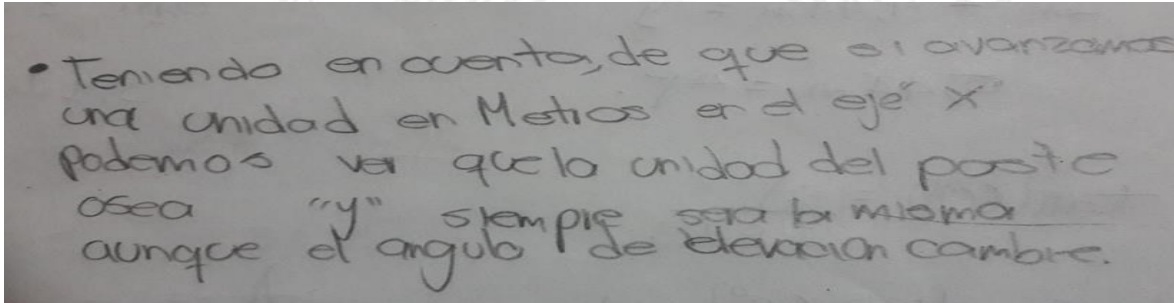 • Teniendo en cuenta, de que si avanzamos
una unidad en Metros en el eje "X"
podemos ver que la unidad del poste
osea "y" siempre sera la misma
aunque el angulo de elevacion cambie.